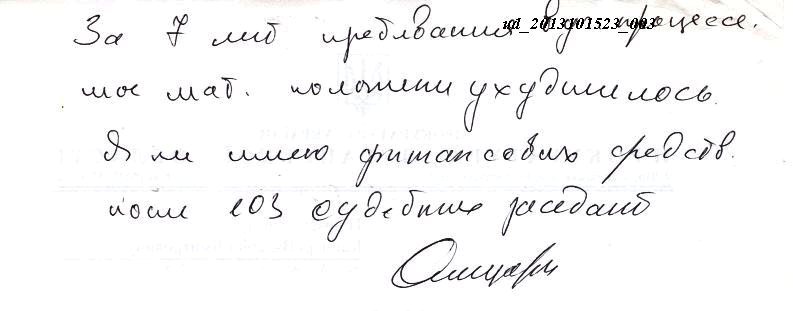 За 7 лет пребывания в уд процессе.
ud_2013101523_003
мое мат. положени ухудшилось.
Я не имею финансовых средств.
после 103 судебных заседаний